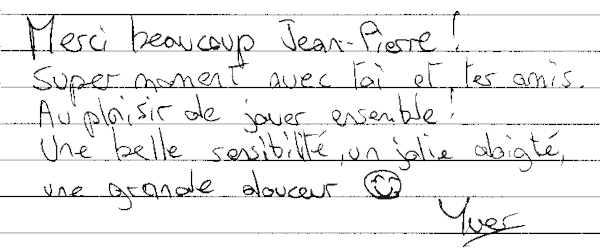 Merci beaucoup Jean-Pierre !
Super moment avec toi et tes amis.
Au plaisir de jouer ensemble !
Une belle sensibilité, un jolie doigté,
une grande douceur ☺
Yves